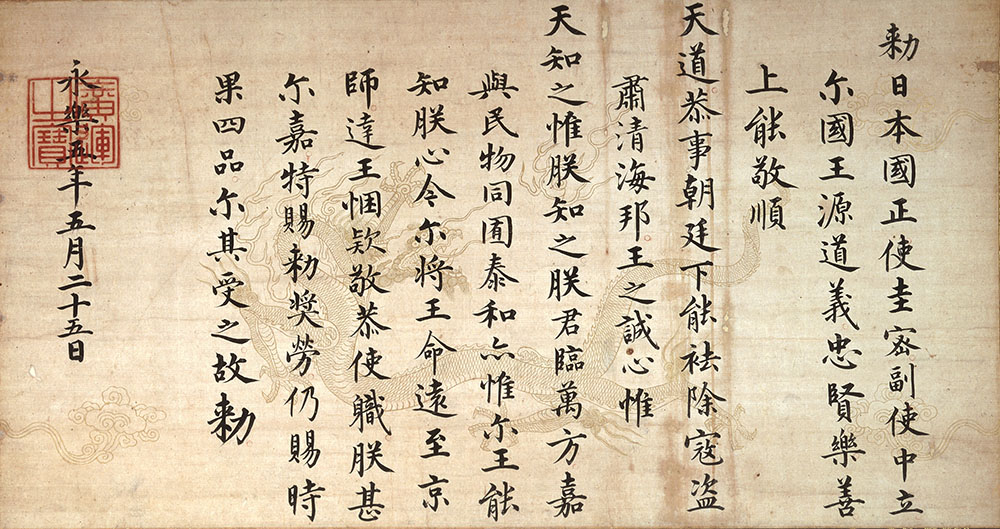 勅日本國正使圭密副使中立
尔國王源道義忠賢樂善
上能敬順
天道恭事朝廷下能祛除寇盗
肅清海邦王之誠心惟
天知之惟朕知之朕君臨萬方嘉
與民物同囿泰和亦惟尔王能
知朕心令尔将王命遠至京
師達王悃欵敬恭使職朕甚
尔嘉特賜勅奨勞仍賜時
果四品尔其受之故勅
永樂五年五月二十五日
廣運之寶